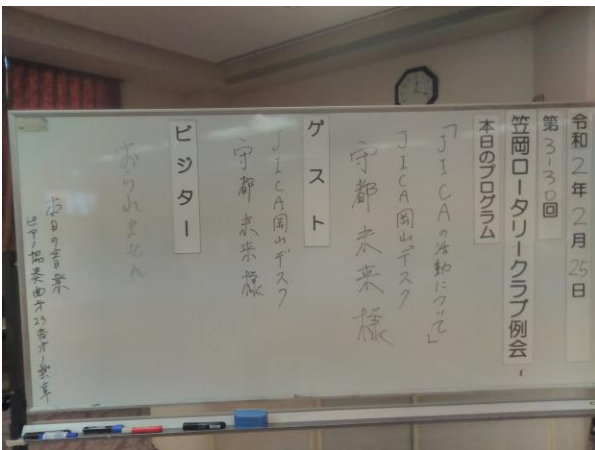 令和2年2月25日
第3130回
笠岡ロータリークラブ例会
本日のプログラム
「JICAの活動について」
JICA岡山デスク
宇都 未来 様
ゲスト
JICA岡山デスク
宇都 未来 様
ビジター
おられません
本日の音楽
ピアノ協奏曲第23番オ一楽章